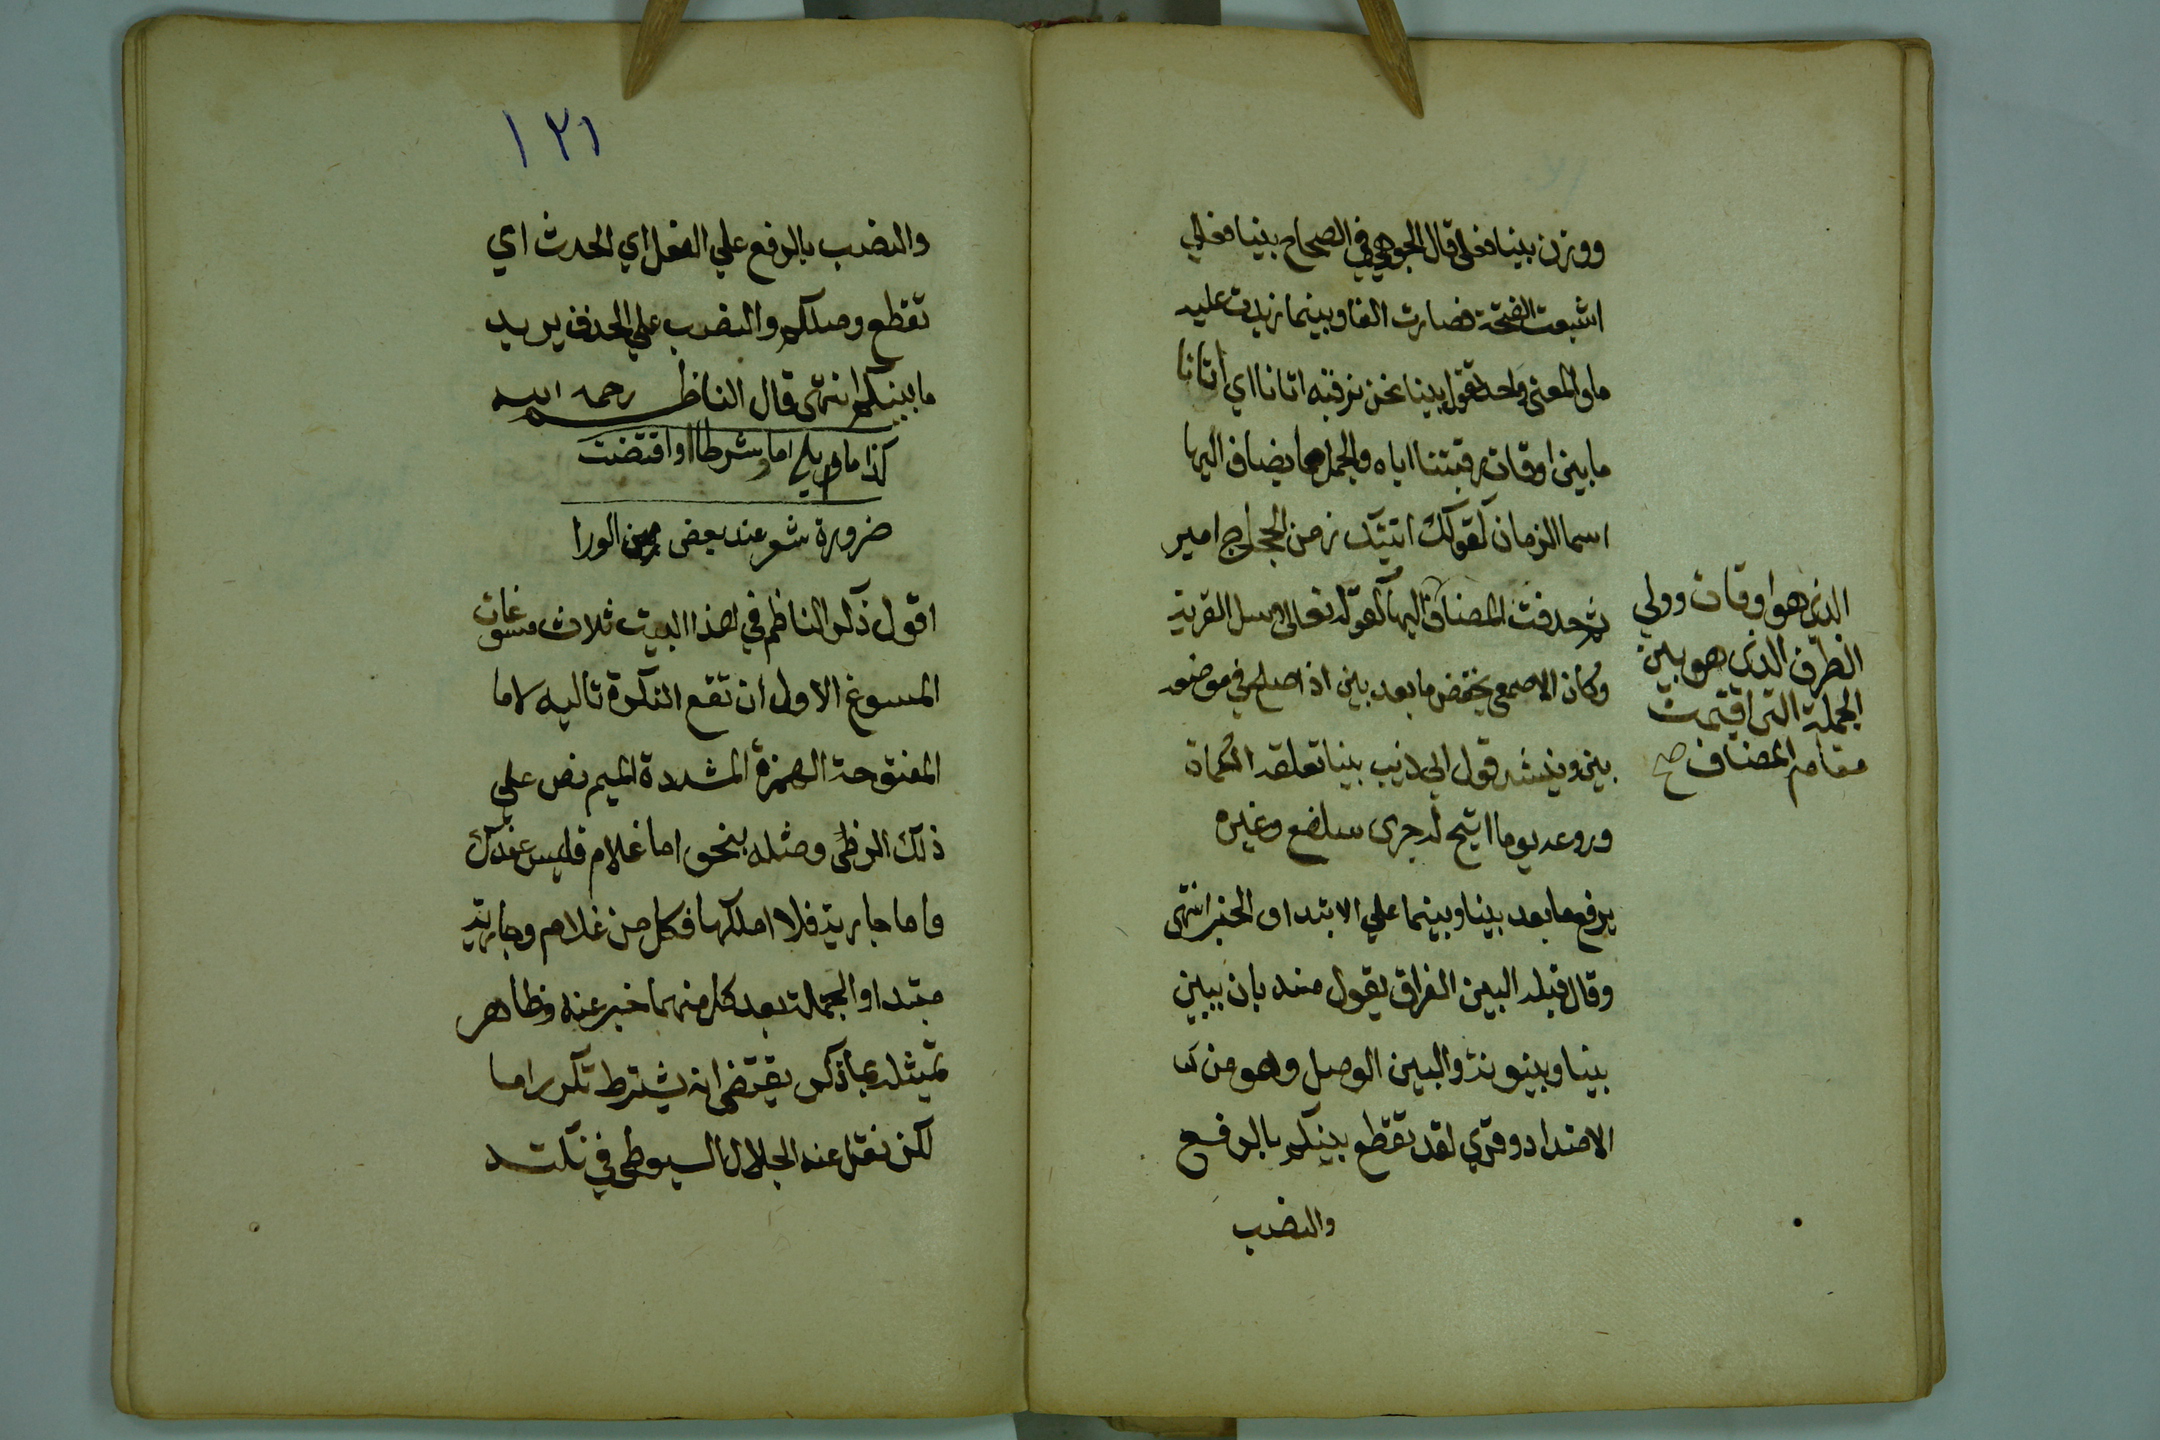 ووزن بينا فعلى قال الجوهري في الصحاح بينا فعلي
اشبعت الفتحة فصارت الفا وبينما زيدت عليه
ما والمعنى واحد تقول بينا نحن نرقبه اتانا اي اتانا
ما بين اوقات رقبتنا اياه والجمل مما يضاف اليها
اسما الزمان كقولك اتيتك زمن الحجاج امير
ثم حذفت المضاف اليها كقوله تعالى وسل القرية
وكان الاصمعي يخفض ما بعد بين اذا صلح في موضعه
بين وينشد قول ابي ذيب بينا تعلقه الكماة
وروغه يوما اتيح له جرى سلفع وغيره
يرفع ما بعد بينا وبينما علي الابتدا والخبر انتهى
وقال قبله البين الفراق يقول منه بان يبين
بينا وبينونة والبين الوصل وهو من
الاضداد وقري لقد تقطع بينكم بالرفع
والنصب
الذي هو اوقات وولي
الظرف الذي هو بين
الجملة التي اقيمت
مقام المضاف صح
١٢١
والنصب بالرفع علي الفعل اي الحدث اي
تقطع وصلكم والنصب علي الحذف يريد
ما بينكم انتهى قال الناظم رحمه الله
كذا ما يلي اما وشرطا او اقتضت
ضرورة شعر عند بعض من الورا
اقول ذكر الناظم في هذا البيت ثلاث مسوغات
المسوغ الاول أن تقع النكرة تاليه لاما
المفتوحة الهمزة المشددة الميم نص علي
ذلك ومثله بنحو اما غلام فليس عندك
واما جارية فلا املكها فكل من غلام وجارية
مبتدا والجملة بعد كل منهما خبر عنه وظاهر
تمثيله بما ذكر يقتضي انه يشترط تكرر اما
لكن نقل عنه الجلال السيوطي في نكته